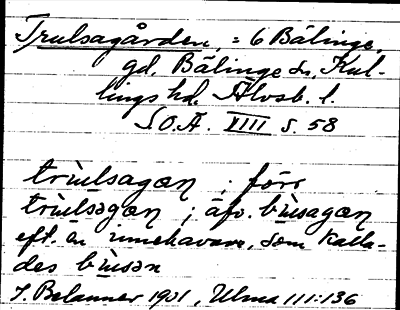 Trulsagården, = 6 Bälinge,
gd. Bälinge sn, Kul-
lings hd. Älvsb. l.
S.O.Ä. VIII s. 58
trùlsagaʀn ; förr
trùlsəgaʀn ; äfv. bùsagaʀn
eft. en innehavare, som kalla-
des bùsən
1901, Ulma 111:136